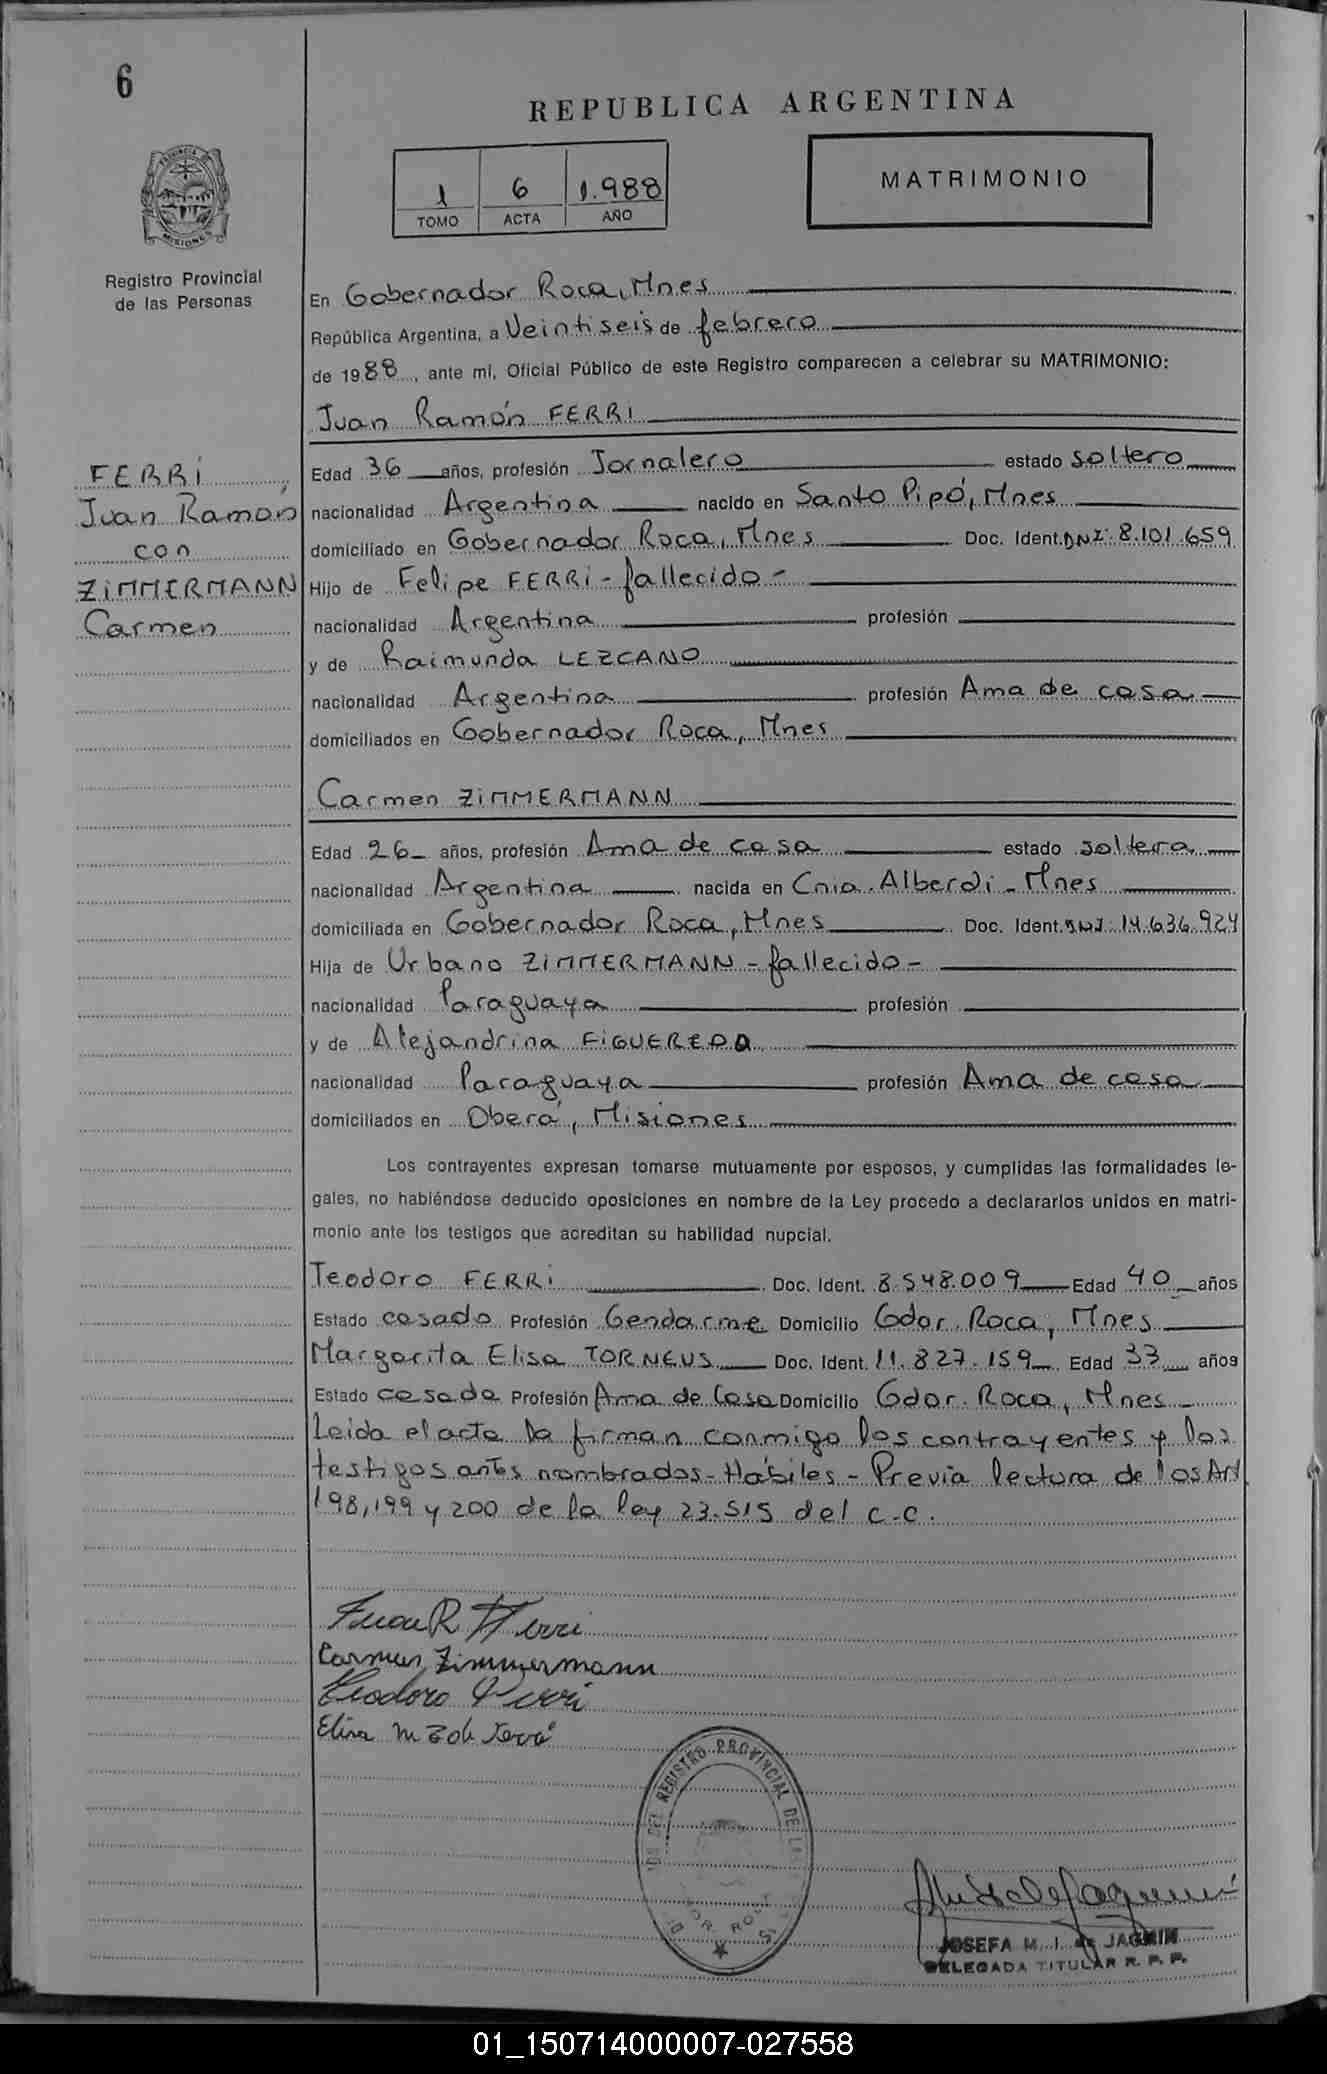 6
REPUBLICA ARGENTINA
1 6 1.988
TOMO ACTA AÑO
MATRIMONIO
PROVINCIA DE
MISIONES
Registro Provincial
de las Personas
En Gobernador Roca, Mnes
República Argentina, a Veintiseis de febrero
de 1988, ante mi, Oficial Público de este Registro comparecen a celebrar su MATRIMONIO:
Juan Ramón FERRI
FERRI
Juan Ramón
con
ZIMMERMANN
Carmen
Edad 36 años, profesión Jornalero estado soltero
nacionalidad Argentina nacido en Santo Pipó, Mnes
domiciliado en Gobernador Roca, Mnes Doc. Ident. DNI: 8.101.659
Hijo de Felipe FERRI - fallecido -
nacionalidad Argentina profesión
y de Raimunda LEZCANO
nacionalidad Argentina profesión Ama de casa
domiciliados en Gobernador Roca, Mnes
Carmen ZIMMERMANN
Edad 26 años, profesión Ama de casa estado soltera
nacionalidad Argentina nacida en Cnia. Alberdi - Mnes
domiciliada en Gobernador Roca, Mnes Doc. Ident. DNI: 14.636.924
Hija de Urbano ZIMMERMANN - fallecido -
nacionalidad Paraguaya profesión
y de Alejandrina FIGUEREDO
nacionalidad Paraguaya profesión Ama de casa
domiciliados en Oberá, Misiones
Los contrayentes expresan tomarse mutuamente por esposos, y cumplidas las formalidades le-
gales, no habiéndose deducido oposiciones en nombre de la Ley procedo a declararlos unidos en matri-
monio ante los testigos que acreditan su habilidad nupcial.
Teodoro FERRI Doc. Ident. 8.548.009 Edad 40 años
Estado casado Profesión Gendarme Domicilio Gdor. Roca, Mnes
Margarita Elisa TORNEUS Doc. Ident. 11.827.159 Edad 33 años
Estado casada Profesión Ama de Casa Domicilio Gdor. Roca, Mnes
Leida el acta la firman conmigo los contrayentes y los
testigos antes nombrados - Hábiles - Previa lectura de los Art
198, 199 y 200 de la ley 23.515 del C.C.
Juan R Ferri
Carmen Zimmermann
Teodoro Ferri
Elisa M
DEL REGISTRO PROVINCIAL DE LAS
JOSEFA M. I. de JAGMIN
DELEGADA TITULAR R. P. P.
01_150714000007-027558